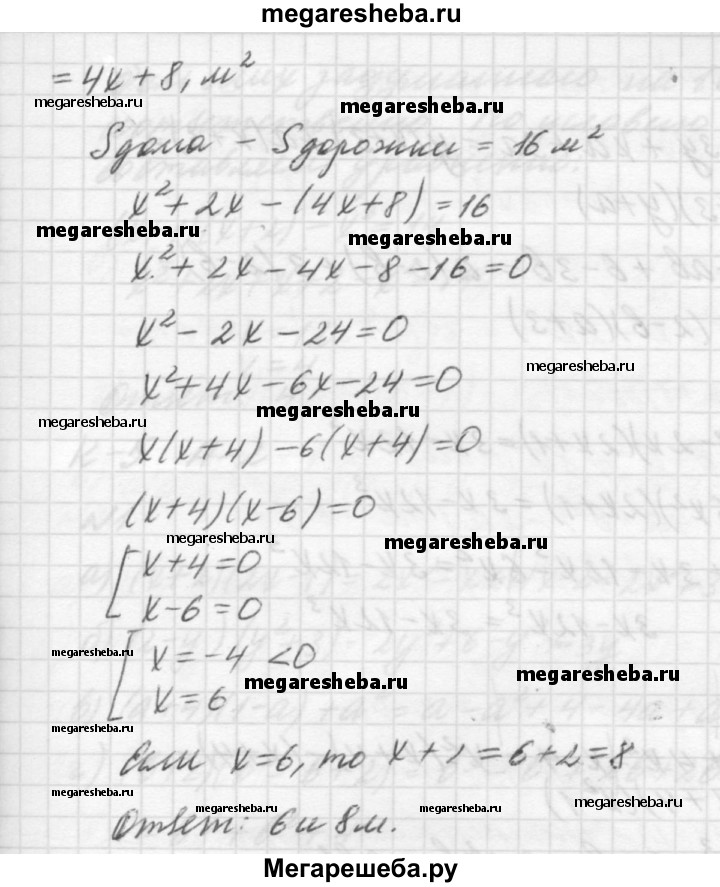 megaresheba.ru
= 4x + 8, м²
megaresheba.ru megaresheba.ru
Sдома - Sдорожки = 16 м²
x² + 2x - (4x + 8) = 16
megaresheba.ru megaresheba.ru
x² + 2x - 4x - 8 - 16 = 0
x² - 2x - 24 = 0
megaresheba.ru
x² + 4x - 6x - 24 = 0
megaresheba.ru megaresheba.ru
x(x+4) - 6(x+4) = 0
(x+4)(x-6) = 0
megaresheba.ru megaresheba.ru
[ x + 4 = 0
x - 6 = 0
megaresheba.ru
[ x = -4 < 0
megaresheba.ru megaresheba.ru
x = 6
megaresheba.ru
Если x = 6, то x + 2 = 6 + 2 = 8
megaresheba.ru megaresheba.ru megaresheba.ru megaresheba.ru
Ответ: 6 и 8 м.
Мегарешеба.ру